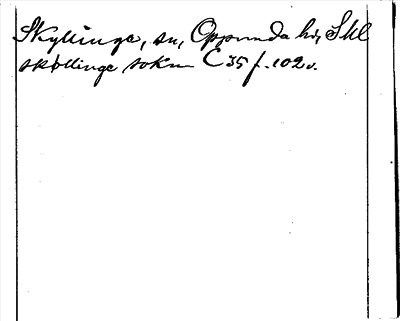 Skyllinge, sn, Oppunda hd, Shl
skøllinge sokn C 35 f. 102 v.